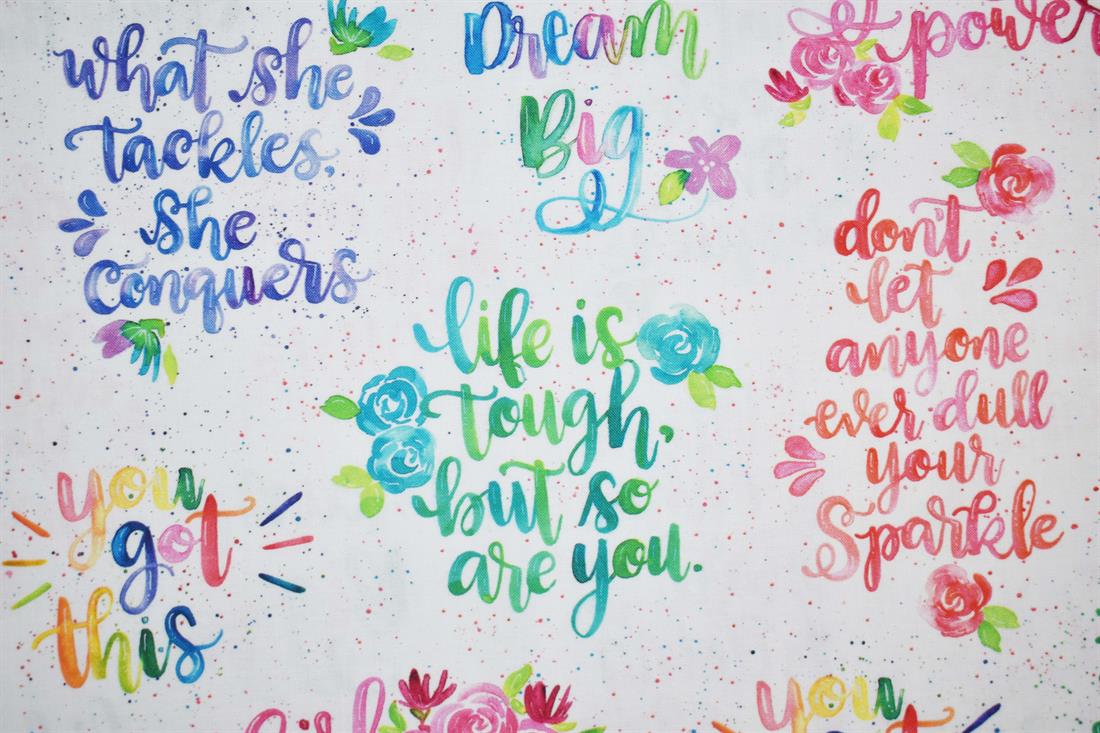 what she
tackles,
she
conquers
Dream
Big
power
don't
let
anyone
ever dull
your
Sparkle
life is
tough,
but so
are you.
you
got
this
girl
you